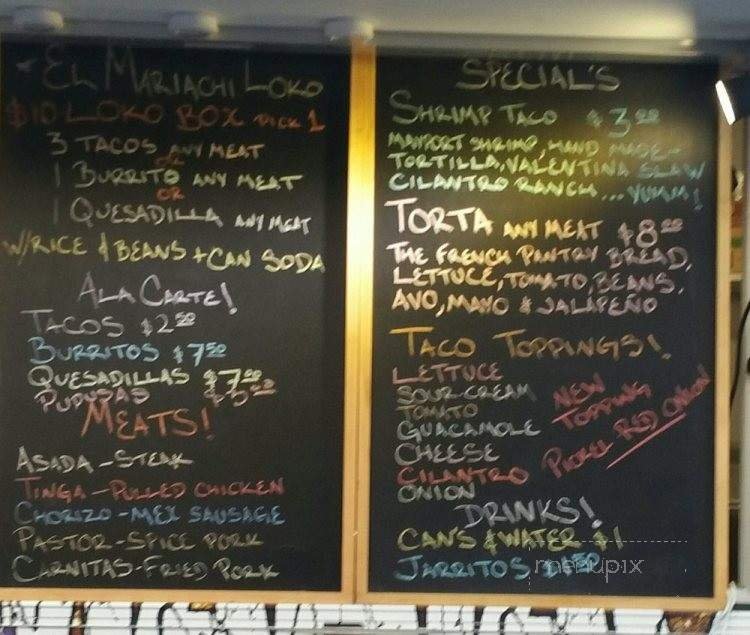 El Mariachi Loko
$10 LOKO BOX PICK 1
3 TACOS ANY MEAT
OR
1 BURRITO ANY MEAT
OR
1 QUESADILLA ANY MEAT
W/RICE & BEANS + CAN SODA
ALA CARTE!
TACOS $2.50
BURRITOS $7.50
QUESADILLAS $7.00
PUPUSAS
MEATS!
ASADA - STEAK
TINGA - PULLED CHICKEN
CHORIZO - MEX SAUSAGE
PASTOR - SPICE PORK
CARNITAS - FRIED PORK
SPECIAL'S
SHRIMP TACO $3.00
MAYPORT SHRIMP, HAND MADE
TORTILLA, VALENTINA SLAW
CILANTRO RANCH... YUMM!
TORTA ANY MEAT $8.00
THE FRENCH PANTRY BREAD,
LETTUCE, TOMATO, BEANS,
AVO, MAYO & JALAPEÑO
TACO TOPPINGS!
LETTUCE
SOUR CREAM
TOMATO
GUACAMOLE
CHEESE
CILANTRO
ONION
NEW
TOPPING
PICKEL RED ONION
DRINKS!
CAN'S & WATER $1
JARRITOS
menupix